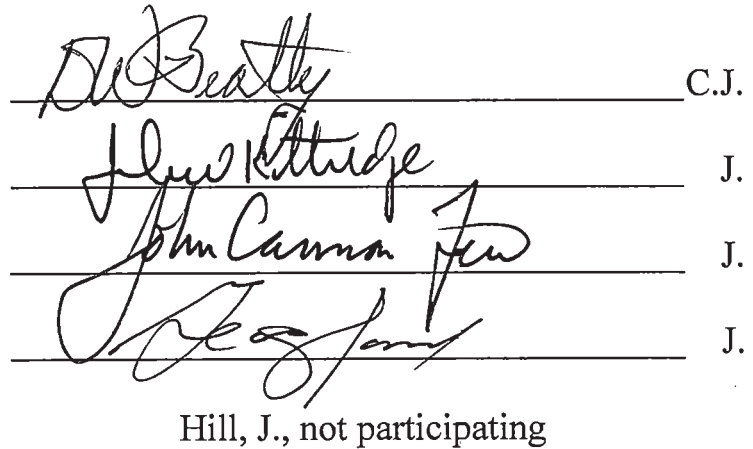 DW Beatty C.J.
John W Kittredge J.
John Cannon Few J.
J.
Hill, J., not participating